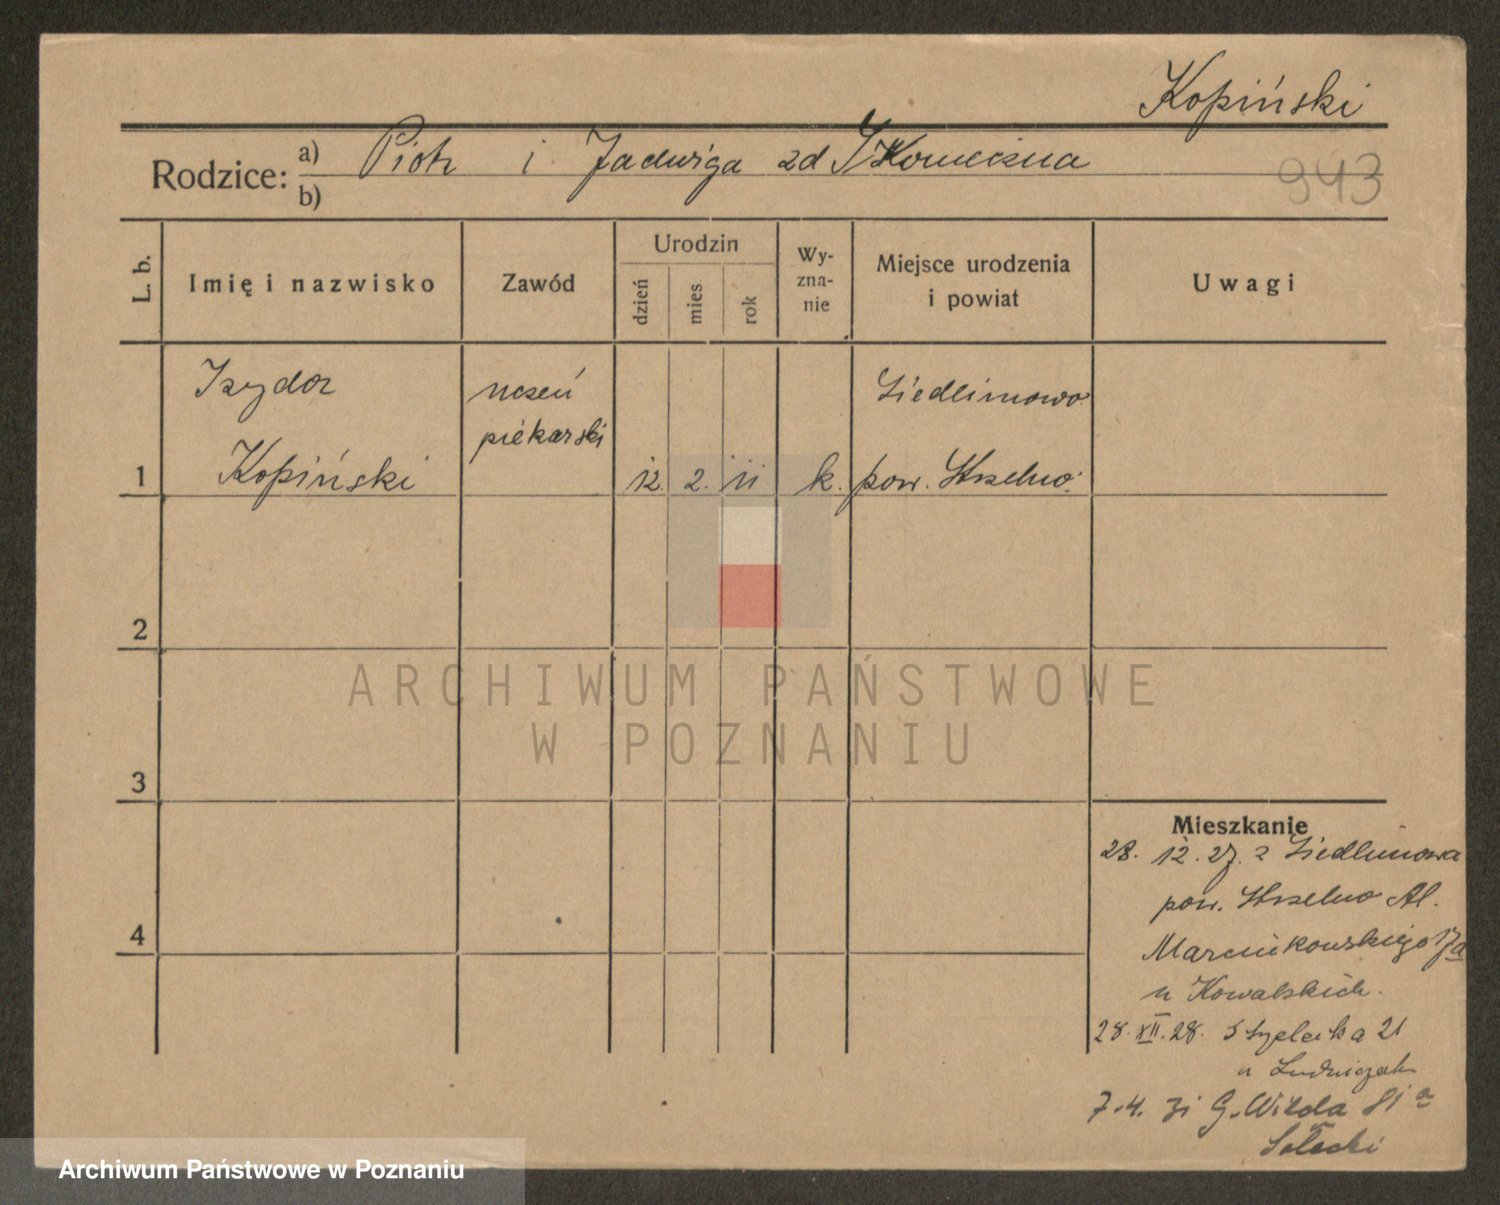 Kopiński
Rodzice: a) Piotr i Jadwiga zd Skonieczna
b)
943
L. b.
Imię i nazwisko
Zawód
Urodzin
dzień
mies.
rok
Wy-
zna-
nie
Miejsce urodzenia
i powiat
Uwagi
Izydor
uczeń
Siedlimowo
piekarski
1
Kopiński
12. 2. 11
k.
pow. Strzelno.
2
3
4
ARCHIWUM PAŃSTWOWE
W POZNANIU
Mieszkanie
28. 12. 27. z Siedlimowa
pow. Strzelno Al.
Marcinkowskiego 17a
u Kowalskich.
28. XII. 28. Strzelecka 21
u Ludwiczak
7.4. 31 G. Wilda 81
Sołecki
Archiwum Państwowe w Poznaniu